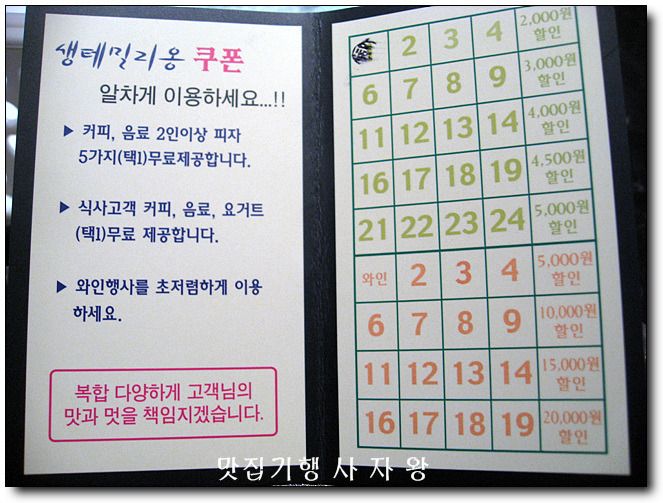 생테밀리옹 쿠폰
알차게 이용하세요...!!
▶ 커피, 음료 2인이상 피자
5가지(택1)무료제공합니다.
▶ 식사고객 커피, 음료, 요거트
(택1)무료 제공합니다.
▶ 와인행사를 초저렴하게 이용
하세요.
복합 다양하게 고객님의
맛과 멋을 책임지겠습니다.
2 3 4 2,000원 할인
6 7 8 9 3,000원 할인
11 12 13 14 4,000원 할인
16 17 18 19 4,500원 할인
21 22 23 24 5,000원 할인
와인 2 3 4 5,000원 할인
6 7 8 9 10,000원 할인
11 12 13 14 15,000원 할인
16 17 18 19 20,000원 할인
맛집기행 사자왕